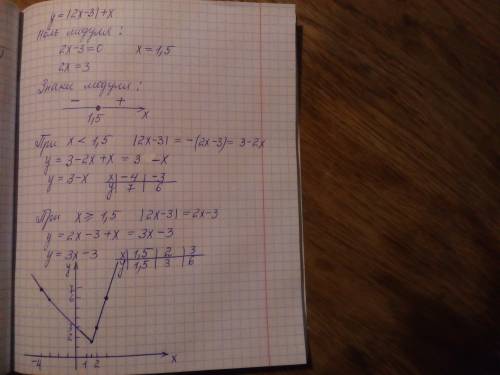 y=|2x-3|+x
Ноль модуля:
2x-3=0 x=1,5
2x=3
Знаки модуля:
- +
1,5 x
При x<1,5 |2x-3|=-(2x-3)=3-2x
y=3-2x+x=3-x
y=3-x x -4 -3
y 7 6
При x≥1,5 |2x-3|=2x-3
y=2x-3+x=3x-3
y=3x-3 x 1,5 2 3
y 1,5 3 6
y
-4 1 2 x